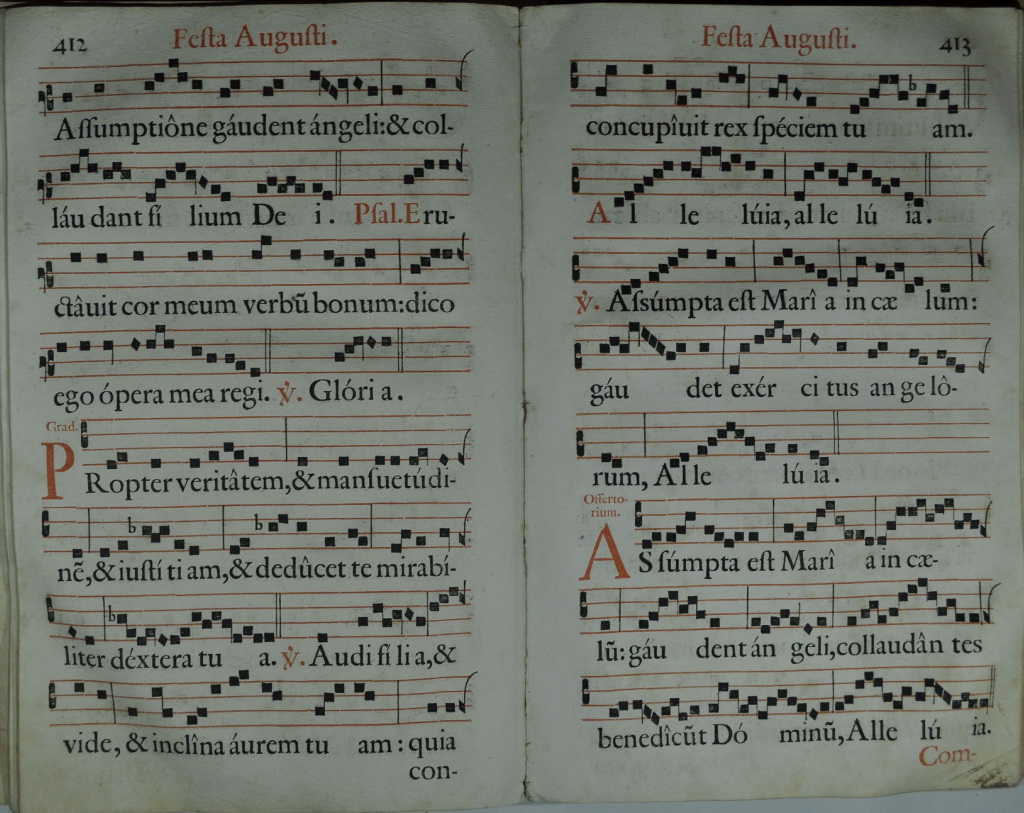 412 Feſta Auguſti.
Aſſumptiône gáudent ángeli:& col-
láu dant fí lium De i. Pſal. E ru-
ctâuit cor meum verbũ bonum: dico
ego ópera mea regi. ℣. Glóri a.
Grad.
PRopter veritâtem,& manſuetúdi-
nẽ,& iuſtí ti am,& dedûcet te mirabí-
liter déxtera tu a. ℣. Audi fí li a,&
vide, & inclîna áurem tu am: quia
con-
Feſta Auguſti. 413
concupîuit rex ſpéciem tu am.
A l le lúia, al le lú ia.
℣. Aſsúmpta eſt Marî a in cæ lum:
gáu det exér ci tus an ge lô-
rum, Al le lú ia.
Offerto-
rium.
AS ſúmpta eſt Marî a in cæ-
lũ: gáu dent án geli, collaudân tes
benedîcũt Dó minũ, Alle lú ia.
Com-